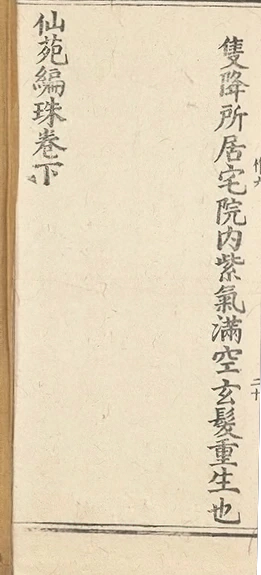 隻降所居宅院內紫氣滿空玄髮重生也
二十
仙苑編珠卷下